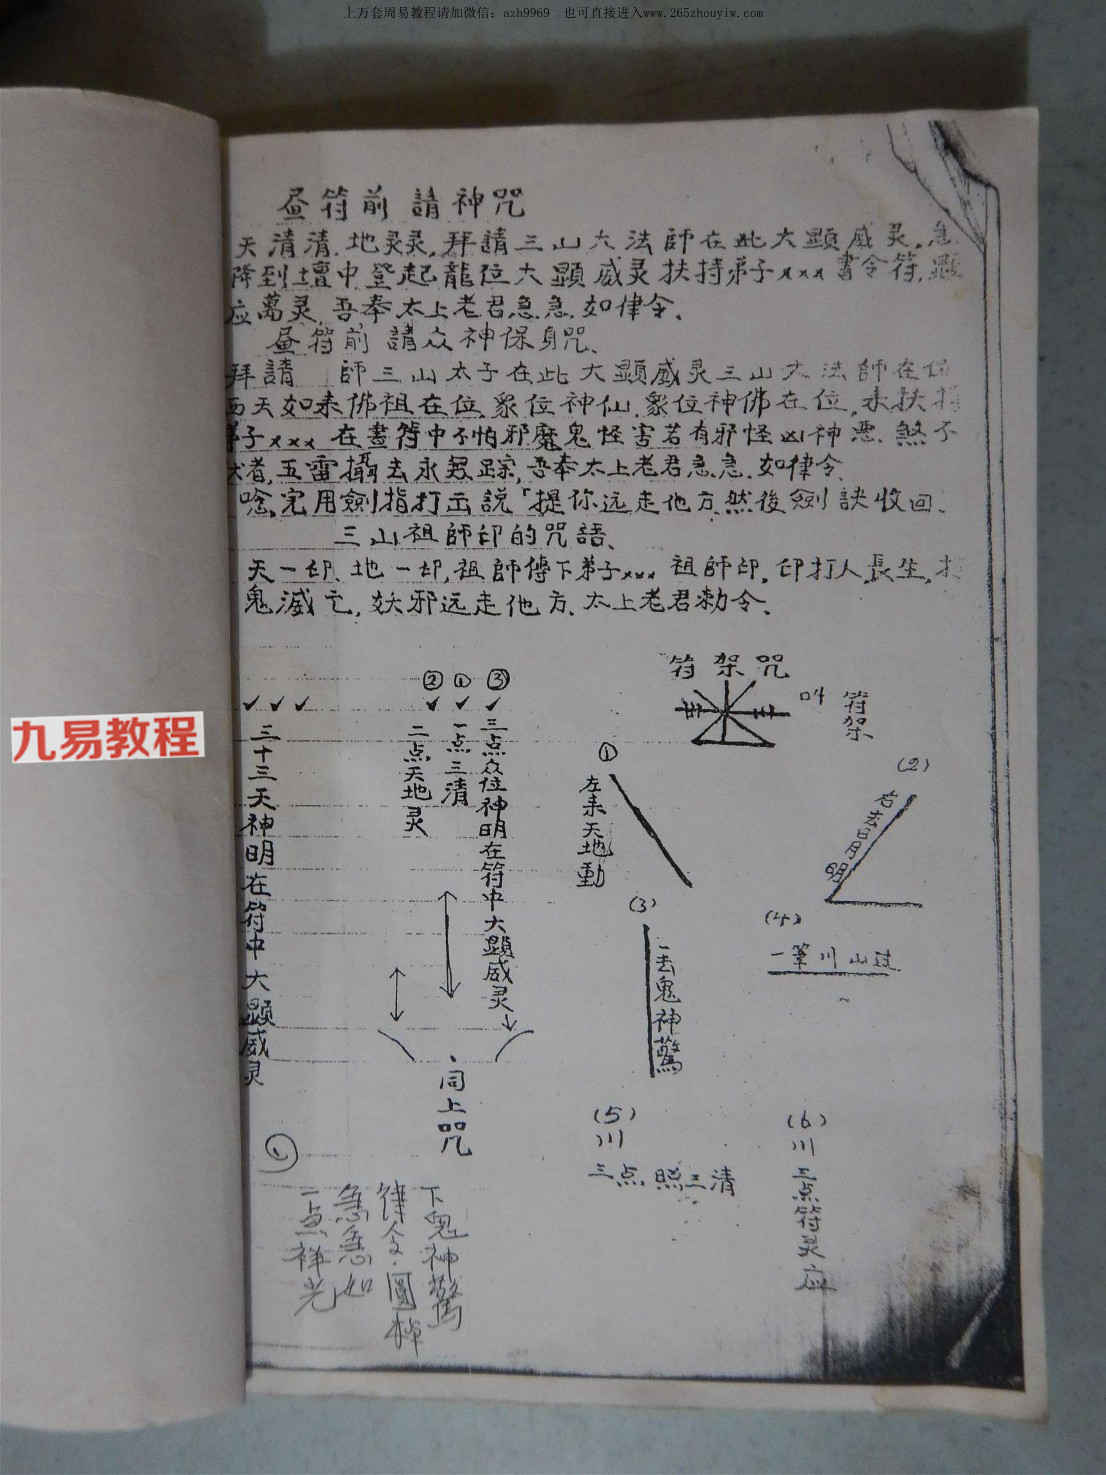 上万套周易教程请加微信：azh9969　也可直接进入www.265zhouyiw.com
昼符前請神咒
天清清.地灵灵,拜請三山大法師在此大顯威灵,急
降到壇中登起龍位大顯威灵扶持弟子xxx書令符,顯
应萬灵,吾奉太上老君急急.如律令、
昼符前請众神保身咒、
拜請 師三山太子在此大顯威灵三山大法師在位
西天如来佛祖在位.象位神仙.象位神佛在位,未扶持
弟子xxx在畫符中不怕邪魔鬼怪害若有邪怪凶神悪.煞不
伏者,五雷攝去永無踪,吾奉太上老君急急.如律令、
唸完用劍指打出説「提你远走他方然後劍訣收回、
三山祖師印的咒語、
天一印、地一印,祖師傳下弟子xxx祖師印,印打人,長生,打
鬼滅亡,妖邪远走他方、太上老君勅令、
符架咒
叫符架
② ① ③
✓✓✓ ✓ ✓ ✓
三点众位神明在符中大顯威灵
一点三清
二点天地灵
三十三天神明在符中大顯威灵
①
左来天地動
(2)
右去日月明
(3)
一丢鬼神驚
(4)
一筆川山过
(5)
川
三点照三清
(6)
川
三点符灵应
同上咒
下鬼神驚
律令.圖
急急如
一点祥光
九易教程